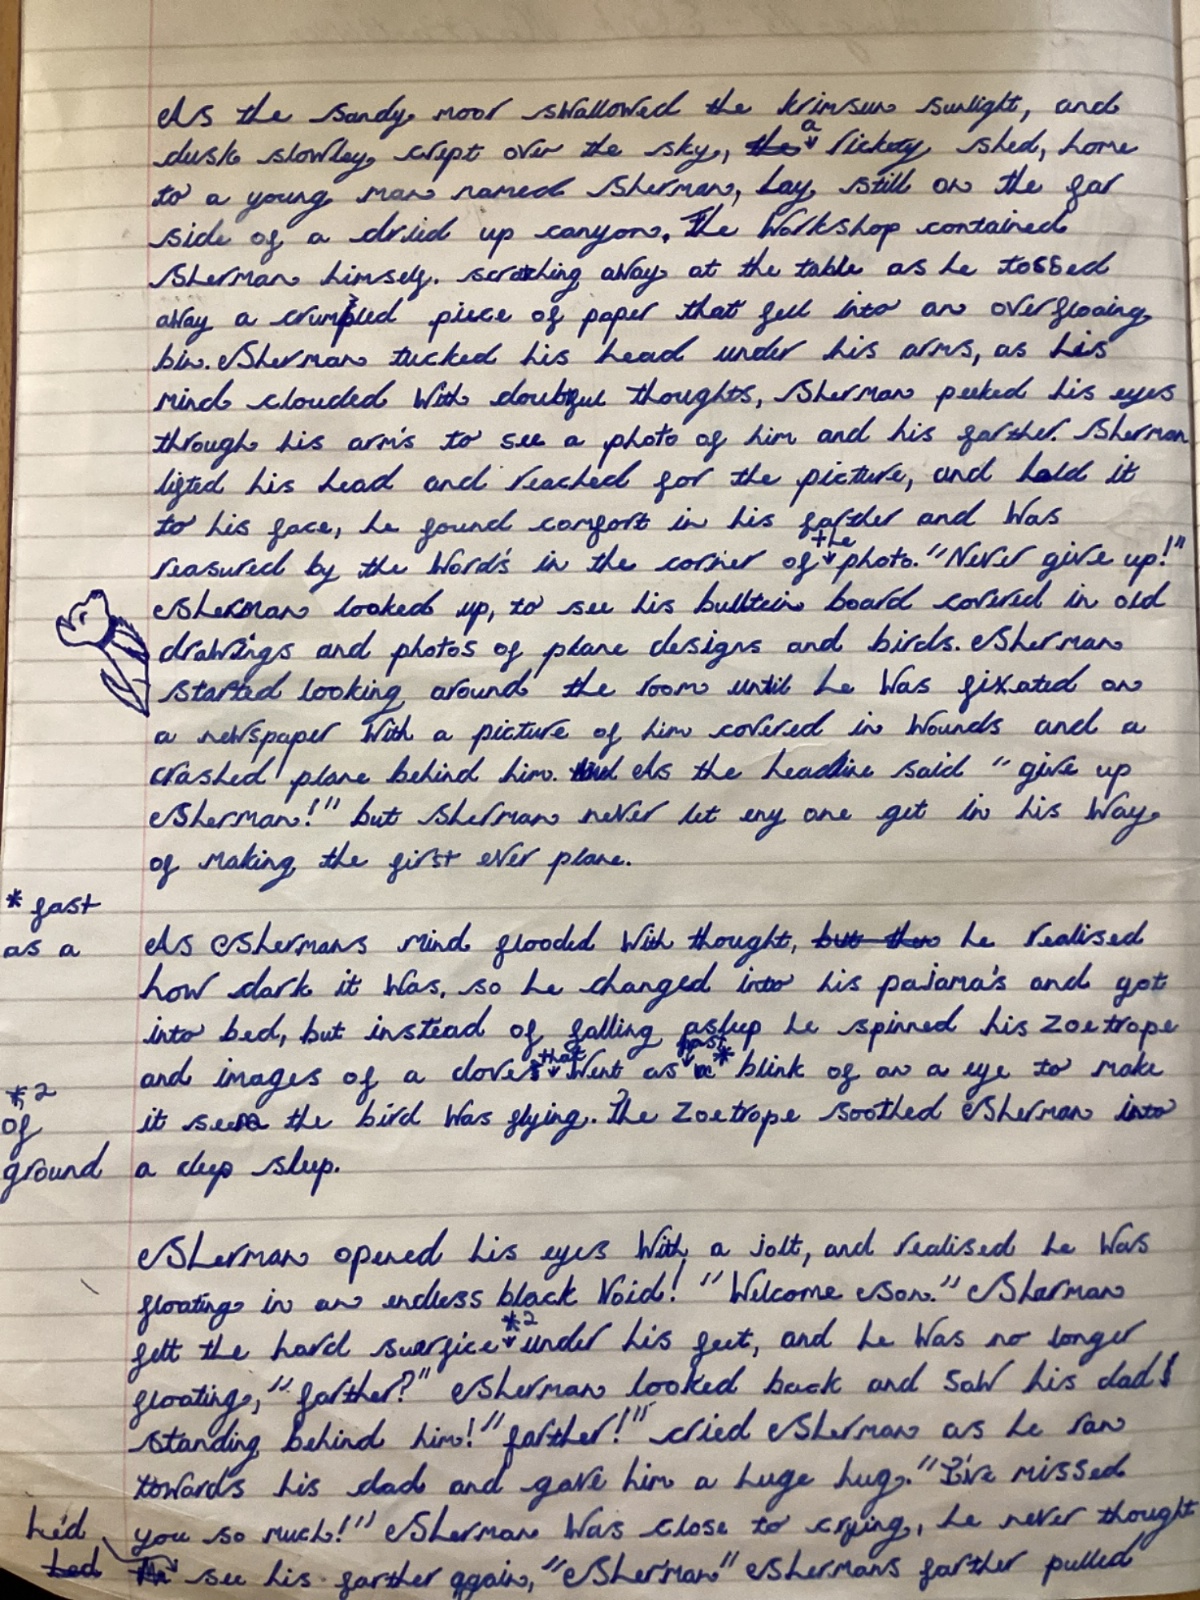 As the sandy moor swallowed the krimsun sunlight, and
dusk slowley crept over the sky, the a rickety shed, home
to a young man named Sherman, lay still on the far
side of a dried up canyon. The workshop contained
Sherman himself. scratching away at the table as he tossed
away a crumpled piece of paper that fell into an overfloaing
bin. Sherman tucked his head under his arms, as his
mind clouded with doubtful thoughts, Sherman peeked his eyes
through his arm's to see a photo of him and his farther. Sherman
lifted his head and reached for the picture, and held it
to his face, he found comfort in his farther and was
reasured by the word's in the corner of the photo. "Never give up!"
Sherman looked up, to see his bulltein board covered in old
drawings and photos of plane designs and birds. Sherman
started looking around the room until he was fixated on
a newspaper with a picture of him covered in wounds and a
crashed plane behind him. As the headline said "give up
Sherman!" but Sherman never let eny one get in his way
of making the first ever plane.
* fast
as a
As Shermans mind flooded with thought, but the he realised
how dark it was, so he changed into his pajama's and got
into bed, but instead of falling asleep he spinned his zoetrope
and images of a doves that went as fast a * blink of an a eye to make
it seem the bird was flying. The zoetrope soothed Sherman into
a deep sleep.
*2
of
ground
Sherman opened his eyes with a jolt, and realised he was
floating in an endless black void! "Welcome son." Sherman
felt the hard suerfice *2 under his feet, and he was no longer
floating, "farther?" Sherman looked back and saw his dad
standing behind him! "farther!" cried Sherman as he ran
towards his dad and gave him a huge hug. "I've missed
you so much!" Sherman was close to crying, he never thought
he'd
see his farther again, "Sherman" Shermans farther pulled